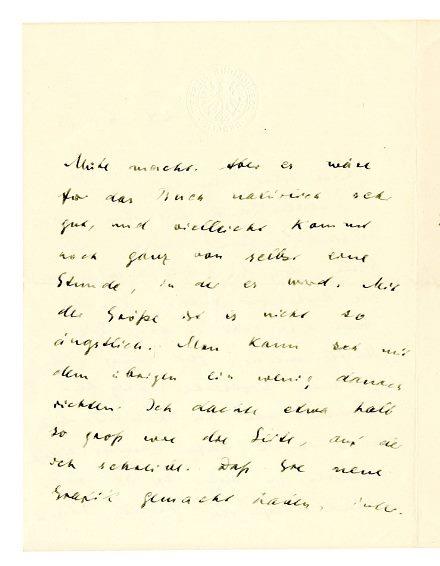 Mühe macht. Aber es wäre
für das Buch natürlich sehr
gut, und vielleicht kommt
noch ganz von selbst eine
Stunde, in der es wird. Mit
der Größe ist es nicht so
ängstlich. Man kann sich mit
dem übrigen ein wenig danach
richten. Ich dachte etwa halb
so groß wie die Seite, auf die
ich schreibe. Daß Sie neue
Grafik gemacht haben,